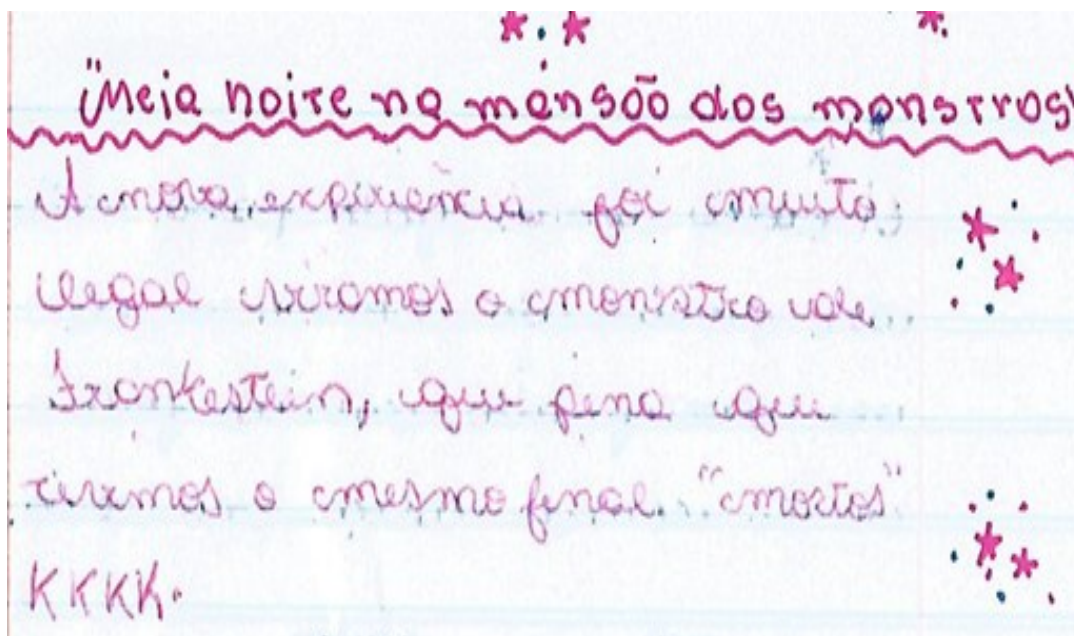 "Meia noite na mansão dos monstros"
A nova experiência foi muito
legal viramos o monstro de
Frankestein, que pena que
tivemos o mesmo final "mortos"
KKKK.